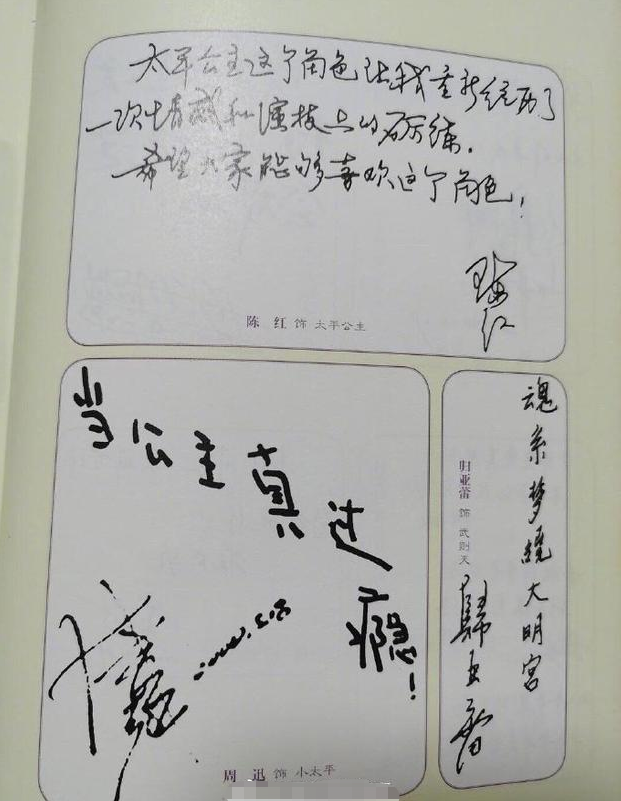 太平公主这个角色让我重新经历了
一次情感和演技上的磨练.
希望大家能够喜欢这个角色!
陈红
陈 红 饰 太平公主
当公主真过瘾!
周 迅 饰 小太平
魂系梦绕大明宫
归亚蕾 饰 武则天
歸亞蕾